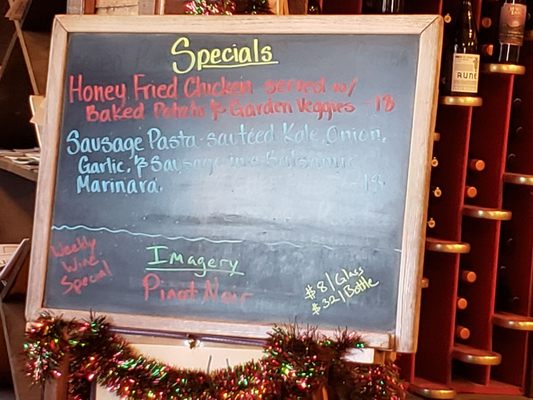 Specials
Honey Fried Chicken - served w/
Baked Potato & Garden Veggies - 18
Sausage Pasta - sautéed Kale, Onion,
Garlic, & Sausage in a Balsamic
Marinara.
Weekly
Wine
Special
Imagery
Pinot Noir
$8/Glass
$32/Bottle
RUNE